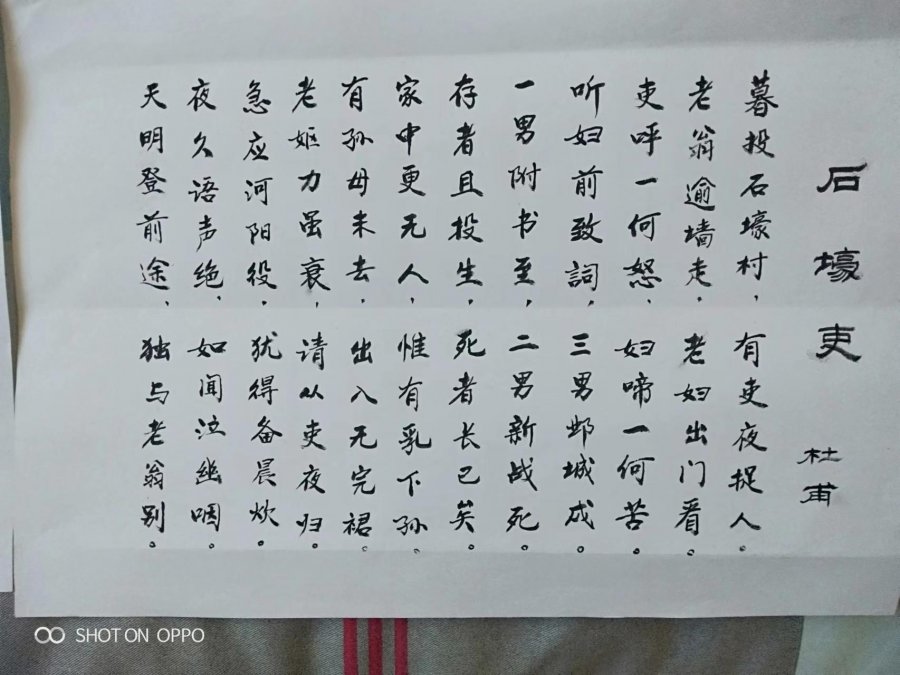 石壕吏
杜甫
暮投石壕村，有吏夜捉人。
老翁逾墙走，老妇出门看。
吏呼一何怒，妇啼一何苦。
听妇前致詞，三男邺城戍。
一男附书至，二男新战死。
存者且投生，死者长已矣。
家中更无人，惟有乳下孙。
有孙母未去，出入无完裙。
老妪力虽衰，请从吏夜归。
急应河阳役，犹得备晨炊。
夜久语声绝，如闻泣幽咽。
天明登前途，独与老翁别。
SHOT ON OPPO